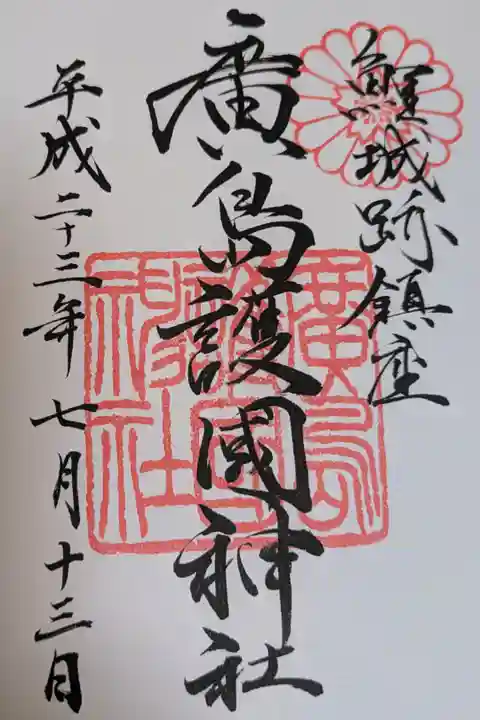 鯉城跡鎮座
廣島護國神社
平成二十三年七月十三日
廣島
護國
神社